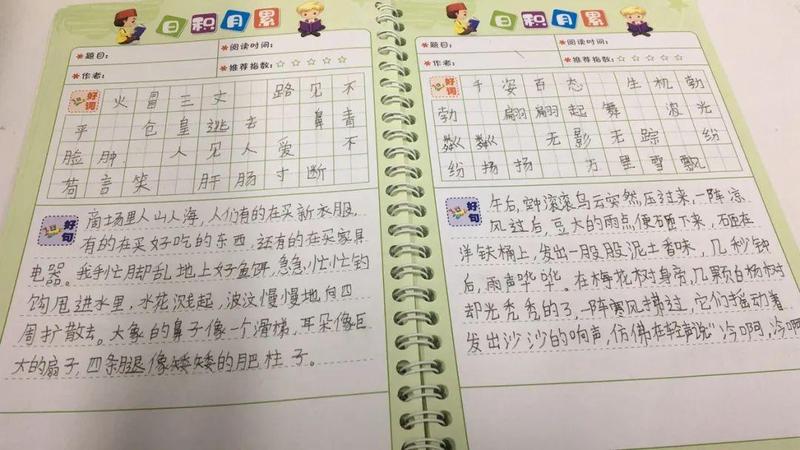 日积月累
题目：
阅读时间：
作者：
推荐指数：☆☆☆☆☆
好词
火冒三丈 路见不
平 仓皇逃去 鼻青
脸肿 人见人爱 不
苟言笑 肝肠寸断
好句
商场里人山人海，人们有的在买新衣服，
有的在买好吃的东西，还有的在买家具
电器。我手忙却乱地上好鱼饵，急急忙忙钓
钩甩进水里，水花溅起，波汶慢慢地向四
周扩散去。大象的鼻子像一个滑梯，耳朵像巨
大的扇子，四条腿像矮矮的肥柱子。
日积月累
题目：
阅读时间：
作者：
推荐指数：☆☆☆☆☆
好词
千姿百态 生机勃
勃 翩翩起舞 波光
粼粼 无影无踪 纷
纷扬扬 万里雪飘
好句
午后，空中滚滚乌云突然压过来，一阵凉
风过后，豆大的雨点便砸下来，砸在
洋铁桶上，发出一股股泥土香味，几秒钟
后，雨声哗哗。在梅花树身旁，几颗白杨树
却光秃秃的了，一阵寒风拂过，它们摇动着
发出沙沙沙的响声，仿佛在轻声说“冷啊，冷啊